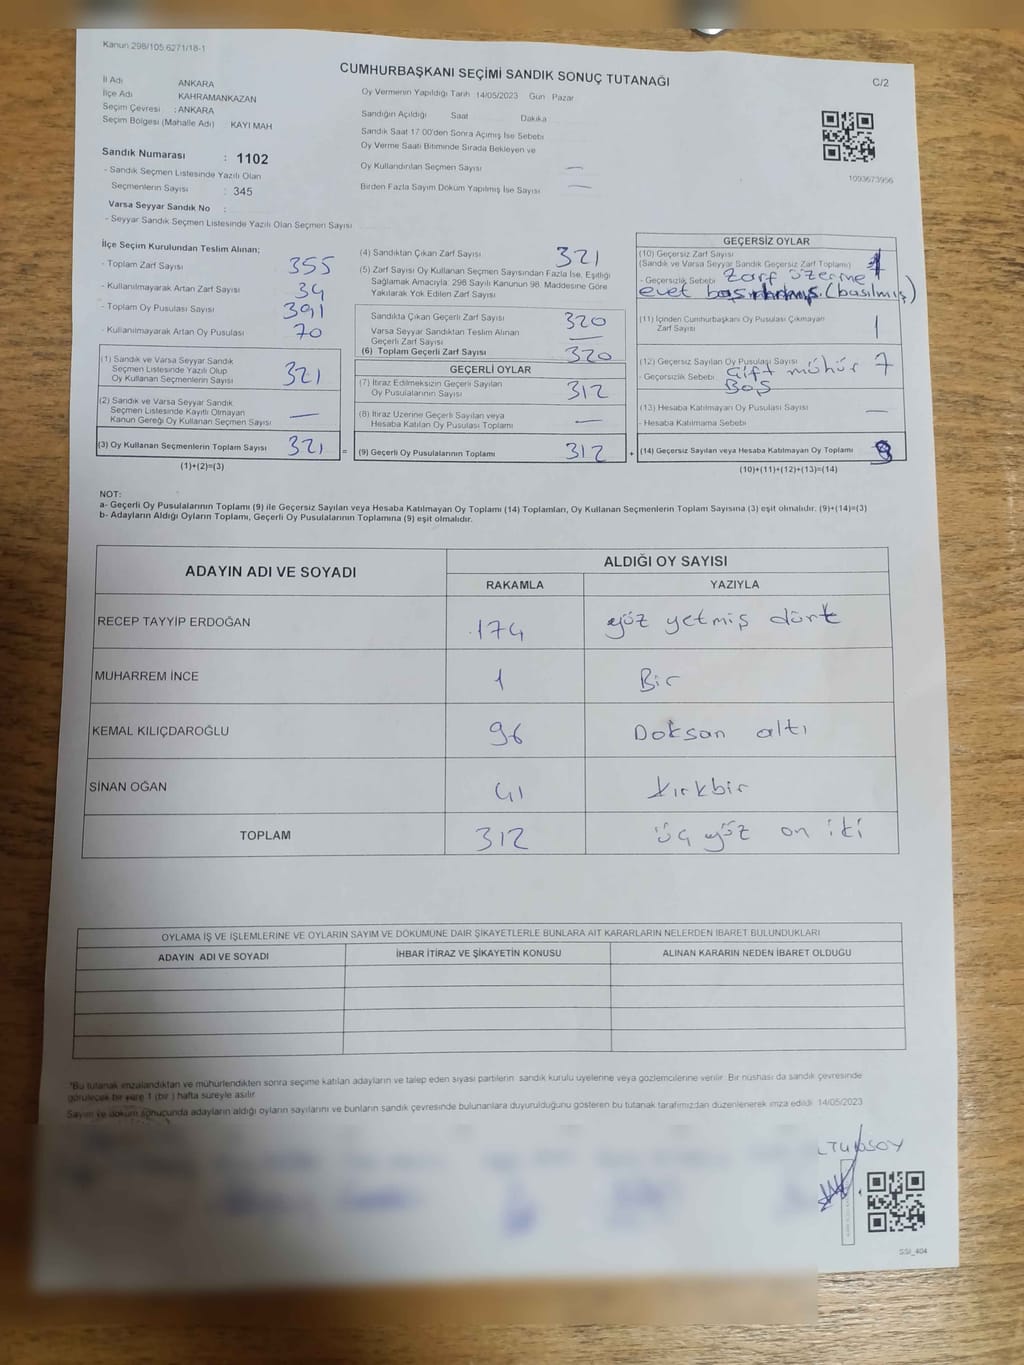 Kanun 298/105 6271/18-1
CUMHURBAŞKANI SEÇİMİ SANDIK SONUÇ TUTANAĞI
C/2
İl Adı ANKARA
İlçe Adı KAHRAMANKAZAN
Seçim Çevresi : ANKARA
Seçim Bölgesi (Mahalle Adı) KAYI MAH
Oy Vermenin Yapıldığı Tarih 14/05/2023 Gün Pazar
Sandığın Açıldığı Saat Dakika
Sandık Saat 17 00'den Sonra Açımış İse Sebebi
Oy Verme Saati Bitiminde Sırada Bekleyen ve
Oy Kullandırılan Seçmen Sayısı —
Birden Fazla Sayım Döküm Yapılmış İse Sayısı —
1093673956
Sandık Numarası : 1102
- Sandık Seçmen Listesinde Yazılı Olan
Seçmenlerin Sayısı : 345
Varsa Seyyar Sandık No :
- Seyyar Sandık Seçmen Listesinde Yazılı Olan Seçmen Sayısı
İlçe Seçim Kurulundan Teslim Alınan;
- Toplam Zarf Sayısı 355
- Kullanılmayarak Artan Zarf Sayısı 34
- Toplam Oy Pusulası Sayısı 391
- Kullanılmayarak Artan Oy Pusulası 70
(1) Sandık ve Varsa Seyyar Sandık
Seçmen Listesinde Yazılı Olup
Oy Kullanan Seçmenlerin Sayısı 321
(2) Sandık ve Varsa Seyyar Sandık
Seçmen Listesinde Kayıtlı Olmayan
Kanun Gereği Oy Kullanan Seçmen Sayısı —
(3) Oy Kullanan Seçmenlerin Toplam Sayısı 321 =
(1)+(2)=(3)
(4) Sandıktan Çıkan Zarf Sayısı 321
(5) Zarf Sayısı Oy Kullanan Seçmen Sayısından Fazla İse, Eşitliği
Sağlamak Amacıyla; 298 Sayılı Kanunun 98. Maddesine Göre
Yakılarak Yok Edilen Zarf Sayısı
Sandıkta Çıkan Geçerli Zarf Sayısı 320
Varsa Seyyar Sandıktan Teslim Alınan
Geçerli Zarf Sayısı —
(6) Toplam Geçerli Zarf Sayısı 320
GEÇERLİ OYLAR
(7) İtiraz Edilmeksizin Geçerli Sayılan
Oy Pusulalarının Sayısı 312
(8) İtiraz Üzerine Geçerli Sayılan veya
Hesaba Katılan Oy Pusulası Toplamı —
(9) Geçerli Oy Pusulalarının Toplamı 312 +
GEÇERSİZ OYLAR
(10) Geçersiz Zarf Sayısı
(Sandık ve Varsa Seyyar Sandık Geçersiz Zarf Toplamı) 1
- Geçersizlik Sebebi Zarf üzerine
evet (basılmış)
(11) İçinden Cumhurbaşkanı Oy Pusulası Çıkmayan
Zarf Sayısı 1
(12) Geçersiz Sayılan Oy Pusulası Sayısı 7
- Geçersizlik Sebebi Çift mühür
Boş
(13) Hesaba Katılmayan Oy Pusulası Sayısı —
- Hesaba Katılmama Sebebi
(14) Geçersiz Sayılan veya Hesaba Katılmayan Oy Toplamı
(10)+(11)+(12)+(13)=(14)
NOT:
a- Geçerli Oy Pusulalarının Toplamı (9) ile Geçersiz Sayılan veya Hesaba Katılmayan Oy Toplamı (14) Toplamları, Oy Kullanan Seçmenlerin Toplam Sayısına (3) eşit olmalıdır. (9)+(14)=(3)
b- Adayların Aldığı Oyların Toplamı, Geçerli Oy Pusulalarının Toplamına (9) eşit olmalıdır.
ADAYIN ADI VE SOYADI ALDIĞI OY SAYISI
RAKAMLA YAZIYLA
RECEP TAYYİP ERDOĞAN 174 yüz yetmiş dört
MUHARREM İNCE 1 Bir
KEMAL KILIÇDAROĞLU 96 Doksan altı
SİNAN OĞAN 41 kırkbir
TOPLAM 312 üç yüz on iki
OYLAMA İŞ VE İŞLEMLERİNE VE OYLARIN SAYIM VE DÖKÜMÜNE DAİR ŞİKAYETLERLE BUNLARA AİT KARARLARIN NELERDEN İBARET BULUNDUKLARI
ADAYIN ADI VE SOYADI İHBAR İTİRAZ VE ŞİKAYETİN KONUSU ALINAN KARARIN NEDEN İBARET OLDUĞU
*Bu tutanak imzalandıktan ve mühürlendikten sonra seçime katılan adayların ve talep eden siyasi partilerin sandık kurulu üyelerine veya gözlemcilerine verilir. Bir nüshası da sandık çevresinde
görülecek bir yere 1 (bir) hafta süreyle asılır.
Sayım ve döküm sonucunda adayların aldığı oyların sayılarını ve bunların sandık çevresinde bulunanlara duyurulduğunu gösteren bu tutanak tarafımızdan düzenlenerek imza edildi. 14/05/2023
SSI_404